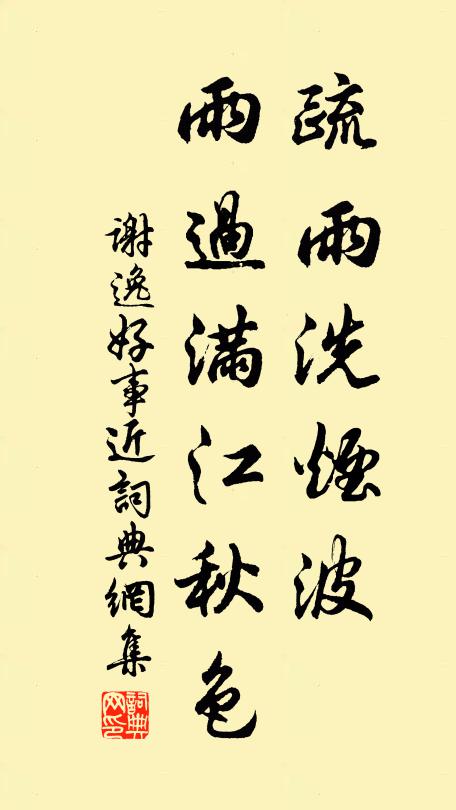 疏雨洗煙波
雨過滿江秋色
謝逸好事近詞典網集
詞典网印